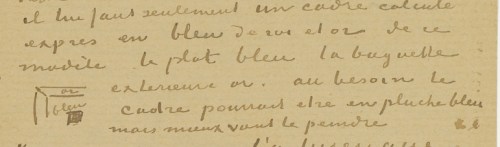 il lui faut seulement un cadre calculé
expres en bleu de roi et or de ce
modèle le plat bleu la baguette
or
exterieure or. au besoin le
bleu
cadre pourrait etre en pluche bleu
mais mieux vaut le peindre